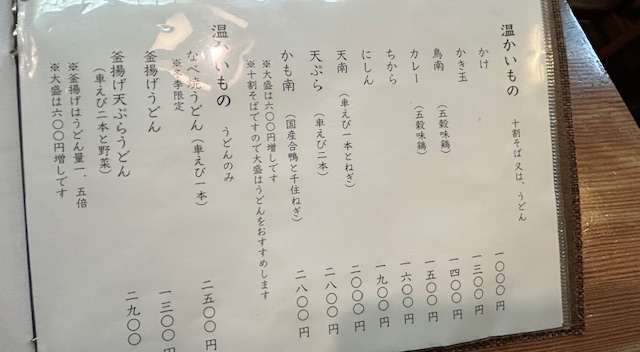 温かいもの 十割そば又は、うどん
かけ 一〇〇〇円
かき玉 一三〇〇円
鳥南（五穀味鶏） 一四〇〇円
カレー（五穀味鶏） 一五〇〇円
ちから 一六〇〇円
にしん 一九〇〇円
天南（車えび一本とねぎ） 二〇〇〇円
天ぷら（車えび二本） 二八〇〇円
かも南（国産合鴨と千住ねぎ） 二八〇〇円
※大盛は六〇〇円増しです
※十割そばですので大盛はうどんをおすすめします
温かいもの うどんのみ
なべ焼うどん（車えび一本） 二五〇〇円
※冬季限定
釜揚げうどん 一三〇〇円
釜揚げ天ぷらうどん 二九〇〇
（車えび二本と野菜）
※釜揚げはうどん量一、五倍
※大盛は六〇〇円増しです